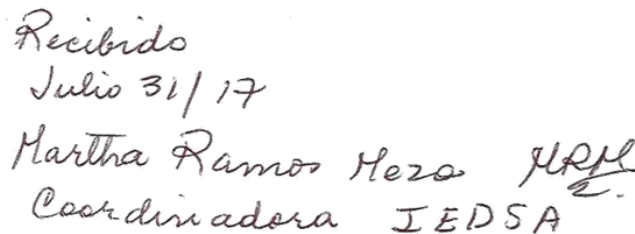 Recibido
Julio 31/17
Martha Ramos Meza MRM
Coordinadora IEDSA